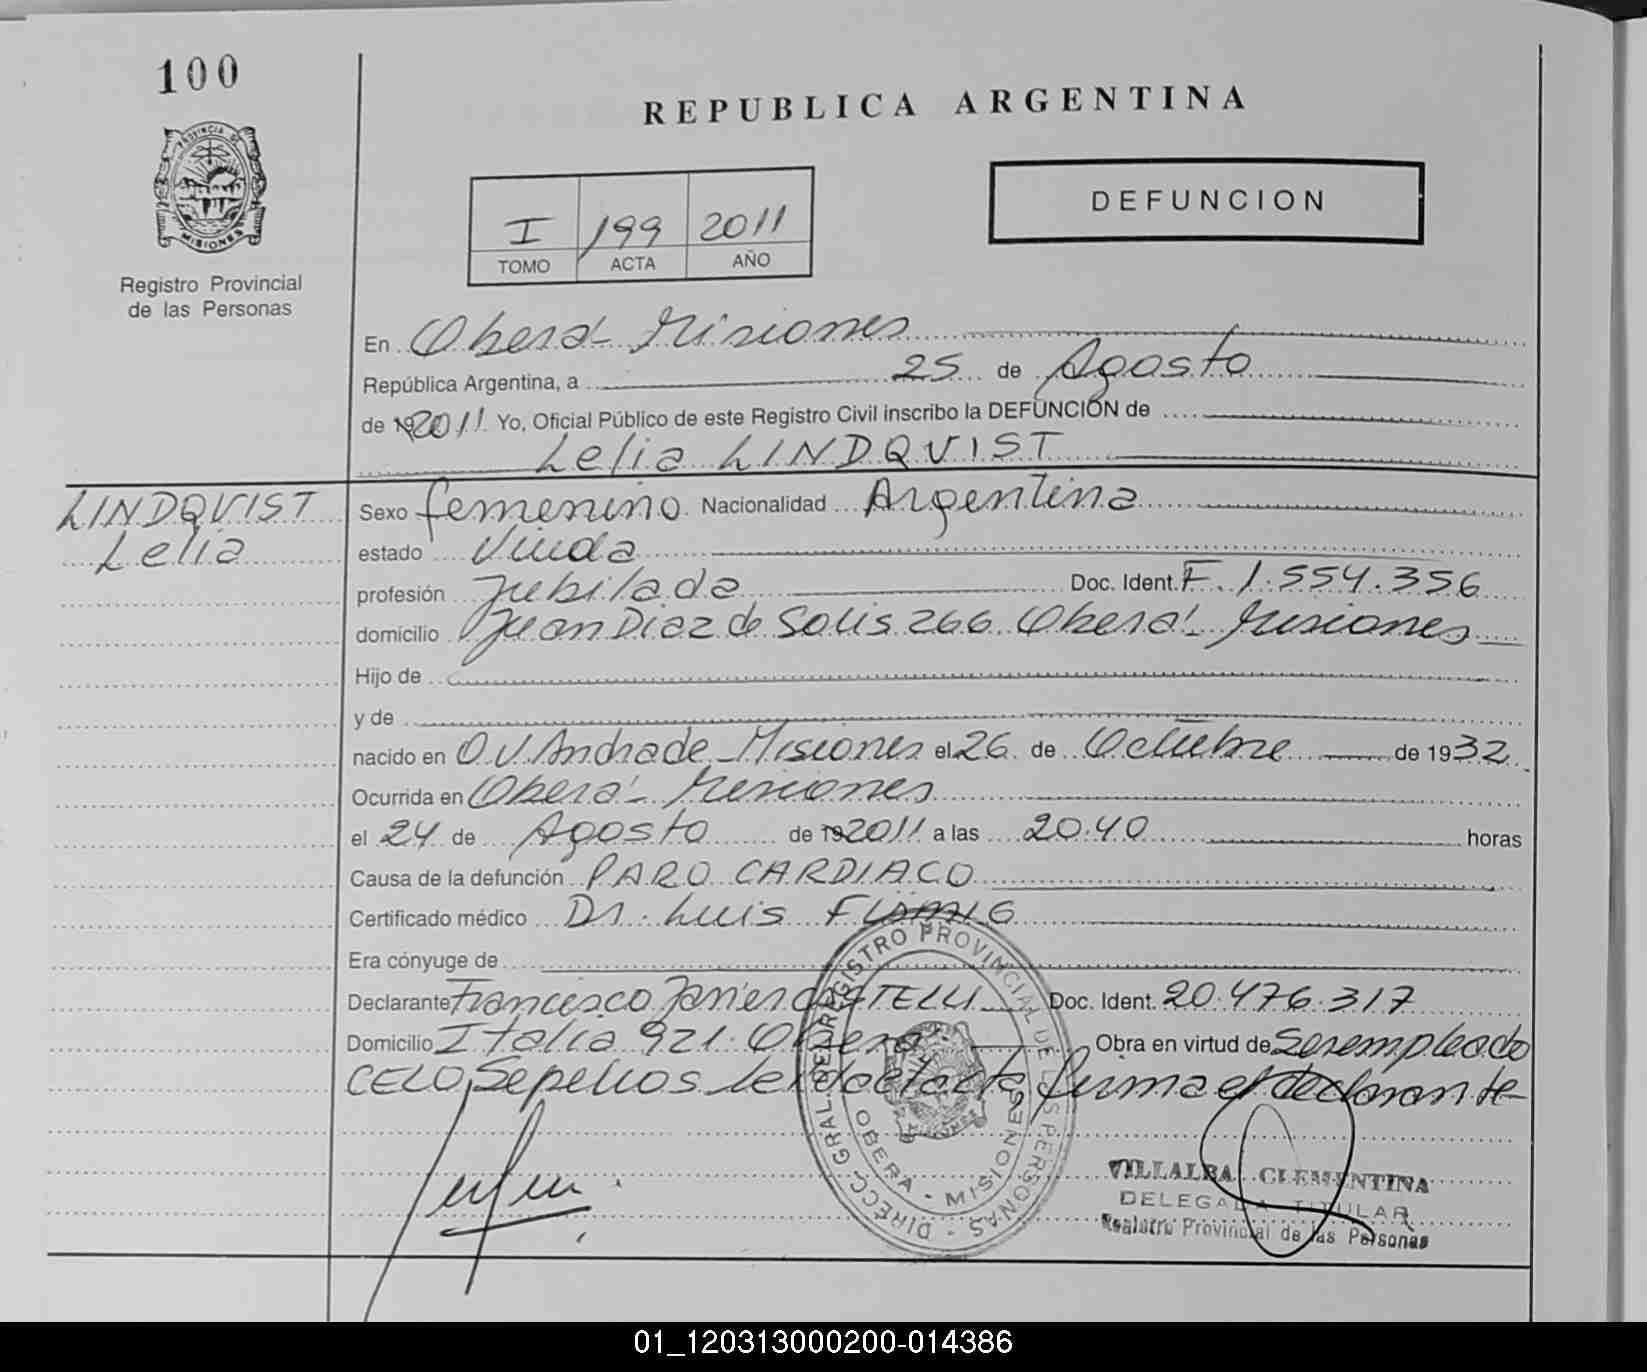 100
REPUBLICA ARGENTINA
PROVINCIA DE
MISIONES
Registro Provincial
de las Personas
DEFUNCION
I 199 2011
TOMO ACTA AÑO
En Oberá - Misiones
República Argentina, a 25 de Agosto
de 192011 Yo, Oficial Público de este Registro Civil inscribo la DEFUNCIÓN de
Lelia LINDQVIST
LINDQVIST
Lelia
Sexo femenino Nacionalidad Argentina
estado Viuda
profesión Jubilada Doc. Ident. F. 1.554.356
domicilio Juan Diaz de Solis 266 Oberá - Misiones
Hijo de
y de
nacido en O.V. Andrade - Misiones el 26 de Octubre de 1932
Ocurrida en Oberá - Misiones
el 24 de Agosto de 192011 a las 20.40 horas
Causa de la defunción PARO CARDIACO
Certificado médico Dr. Luis
Era cónyuge de
Declarante Francisco Javier CASTELLI Doc. Ident. 20.476.317
Domicilio Italia 921. Oberá Obra en virtud de ser empleado
CELO, Sepelios leida el acta firma el declarante
DIRECC. GRAL. DEL REGISTRO PROVINCIAL DE LAS PERSONAS -
OBERA - MISIONES
VILLALBA CLEMENTINA
DELEGADA TITULAR
Registro Provincial de las Personas
01_120313000200-014386